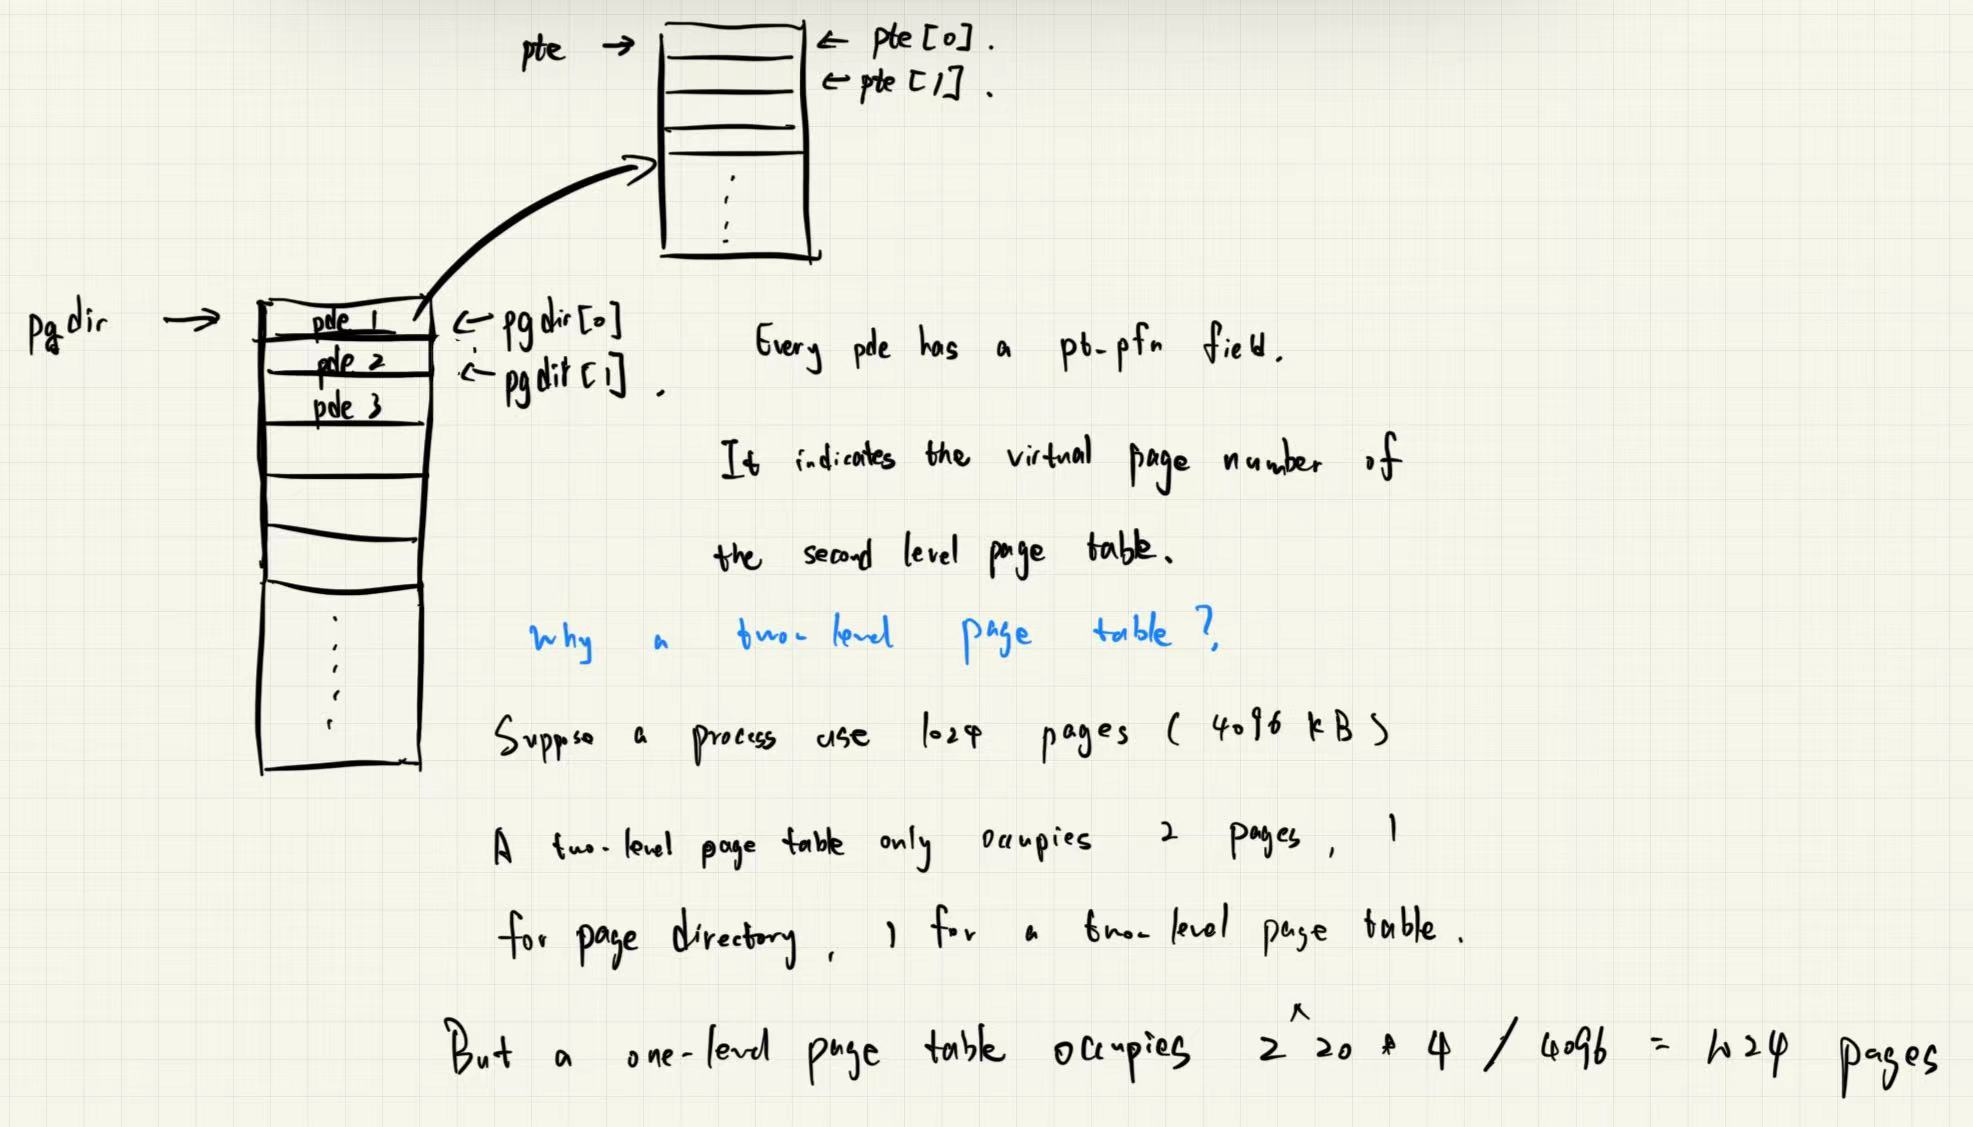 pte → ← pte [0] .
← pte [1] .
pgdir → pde 1 ← pgdir[0]
pde 2 ← pgdit [1] .
pde 3
Every pde has a pt-pfn field.
It indicates the virtual page number of
the second level page table.
Why a two-level page table?
Suppose a process use 1024 pages ( 4096 KB )
A two-level page table only occupies 2 pages, 1
for page directory, 1 for a two-level page table.
But a one-level page table occupies 2^20 * 4 / 4096 = 1024 pages